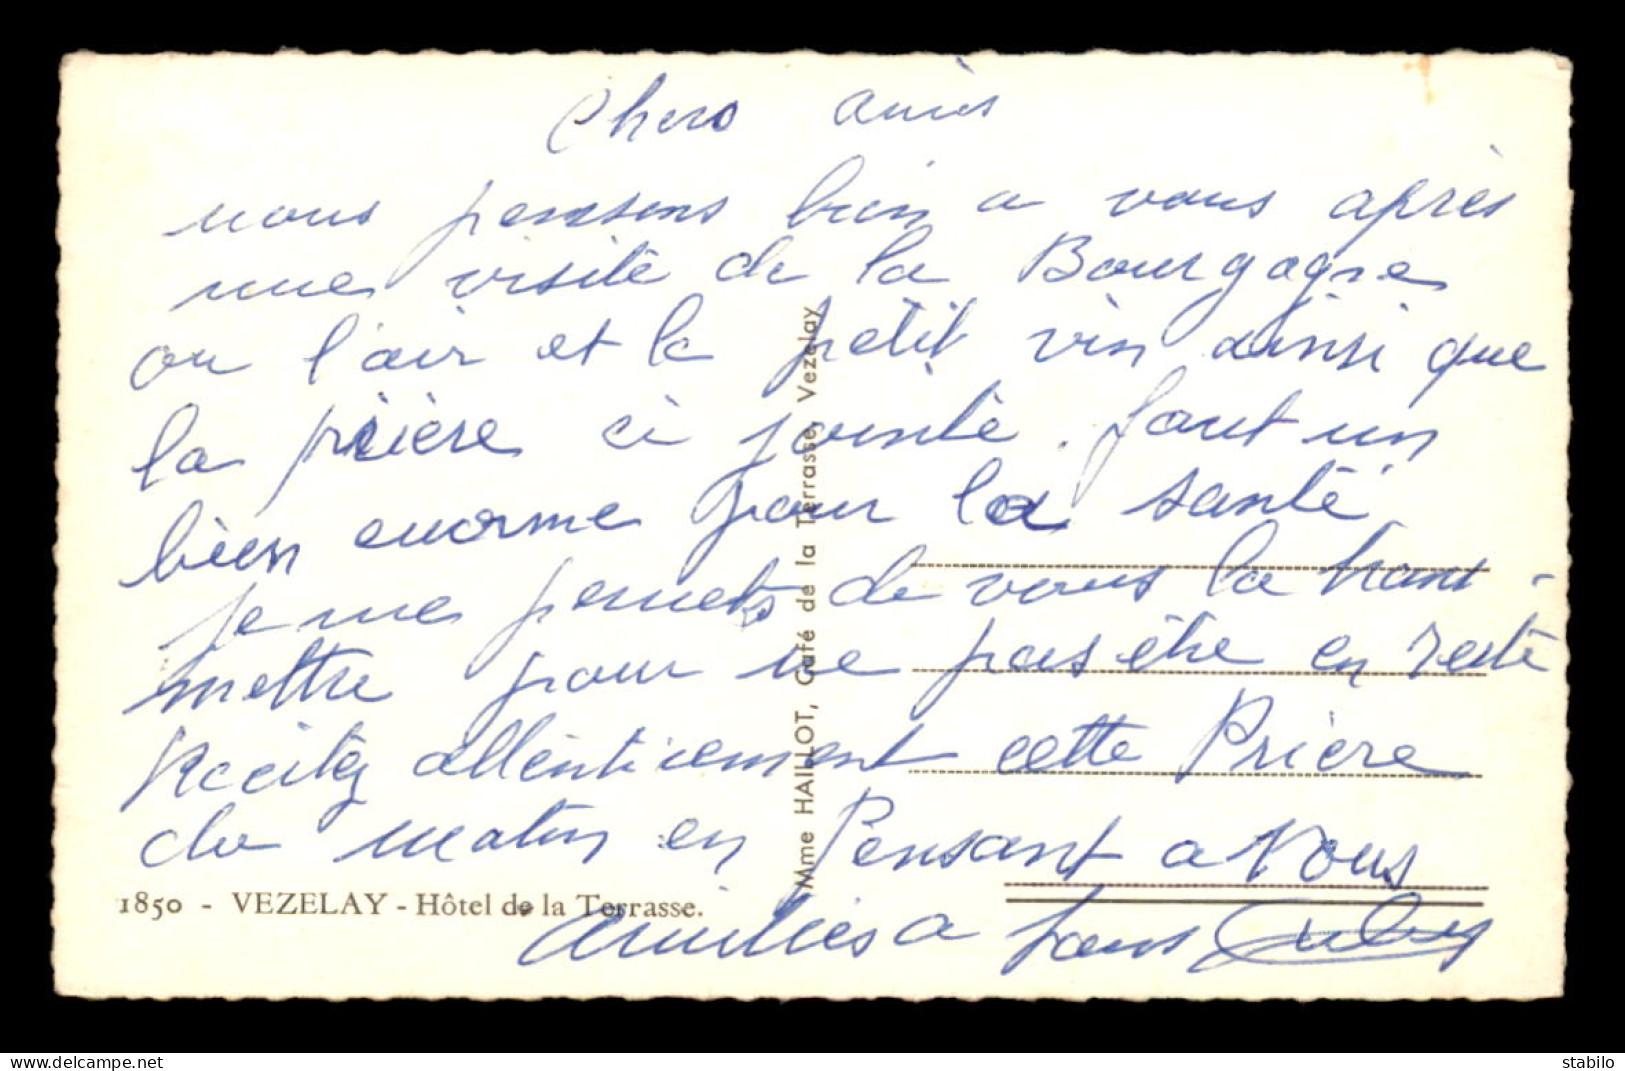 Chers amis
nous pensons bien a vous après
une visite de la Bourgogne
ou l'air et le petit vin ainsi que
la prière ci jointe. font un
bien enorme pour la santé
je me permets de vous la trans-
mettre pour ne pas être en reste
Recitez attentivement cette Prière
du matin en Pensant a Vous
Amitiés a tous
1850 - VEZELAY - Hôtel de la Terrasse.
Mme HAILLOT, Café de la Terrasse, Vezelay
delcampe.net
stabilo